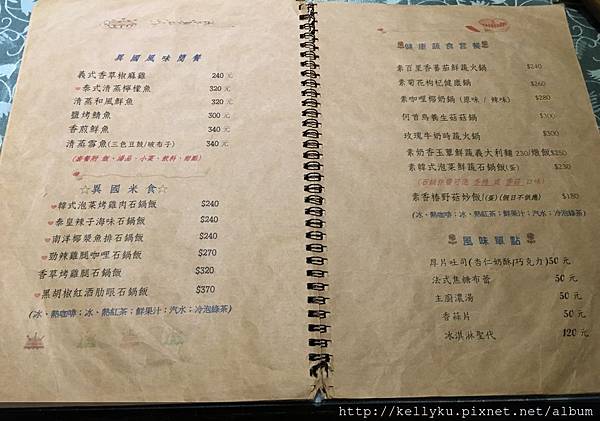 異國風味簡餐
義式香草椒麻雞 240元
泰式清蒸檸檬魚 320元
清蒸和風鮮魚 320元
鹽烤鯖魚 300元
香煎鮮魚 340元
清蒸雪魚(三色豆鼓/破布子) 340元
(套餐附 飯、湯品、小菜、飲料、甜點)
☆異國米食☆
韓式泡菜烤雞肉石鍋飯 $240
泰皇辣子海味石鍋飯 $240
南洋椰漿魚排石鍋飯 $240
勁辣雞腿咖哩石鍋飯 $270
香草烤雞腿石鍋飯 $320
黑胡椒紅酒肋眼石鍋飯 $370
(冰、熱咖啡；冰、熱紅茶；鮮果汁；汽水；冷泡綠茶)
健康蔬食套餐
素百里香蕃茄鮮蔬火鍋 $240
素菊花枸杞健康鍋 $260
素咖哩椰奶鍋 (原味 / 辣味) $280
何首烏養生菇菇鍋 $300
玫瑰牛奶時蔬火鍋 $300
素奶香玉蕈鮮蔬義大利麵 230/燉飯$250
素韓式泡菜鮮蔬石鍋飯(蛋) $230
素香椿野菇炒飯(蛋)(假日不供應) $180
(冰、熱咖啡；冰、熱紅茶；鮮果汁；汽水；冷泡綠茶)
風味單點
厚片吐司(杏仁奶酥/巧克力) 50元
法式焦糖布蕾 50元
主廚濃湯 50元
香蒜片 50元
冰淇淋聖代 120元
http://kellyku.pixnet.net/album